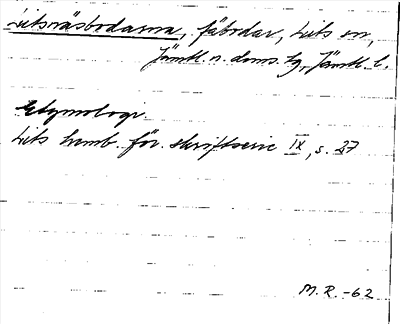 Litsnäsbodarna, fäbodar, Lits sn,
Jämtl. n. doms. tg, Jämtl. l.
Etymologi
Lits hemb. för. skriftserie IX, s. 27
M. R. -62